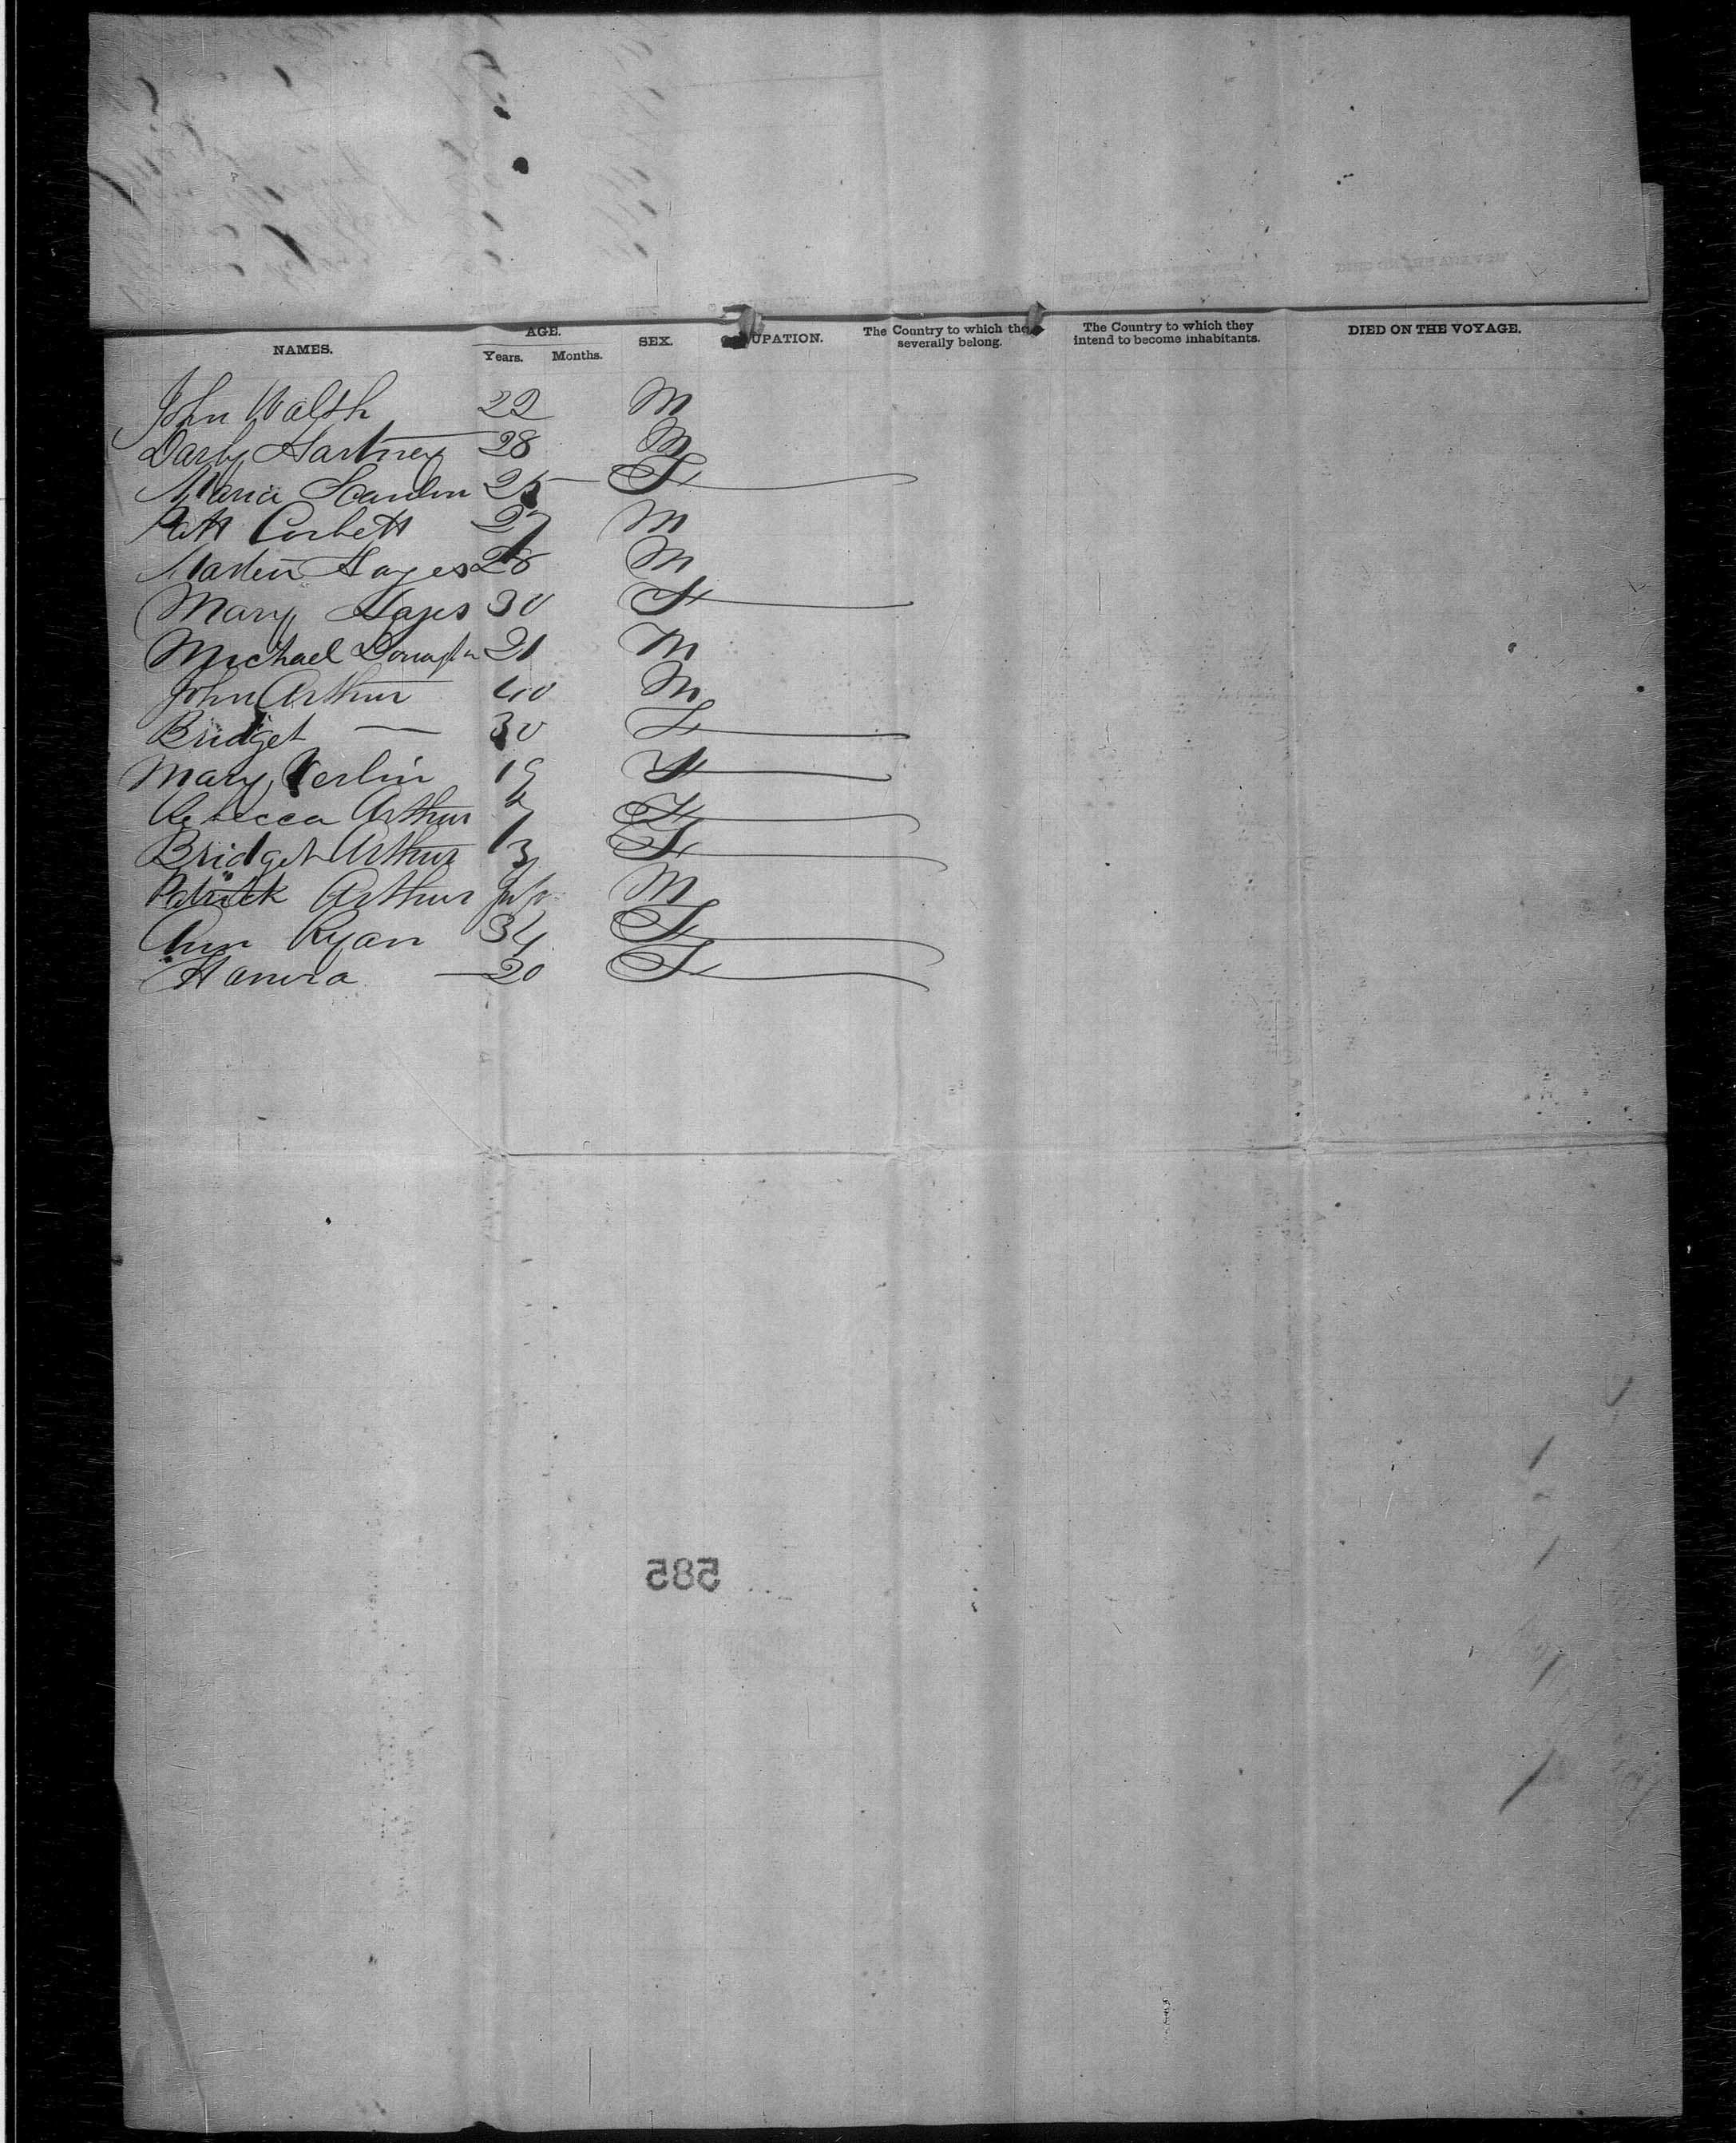 NAMES. AGE. Years. Months. SEX. OCCUPATION. The Country to which they severally belong. The Country to which they intend to become inhabitants. DIED ON THE VOYAGE.
John Walsh 22 M
Darby Hartney 28 M
Maria Scanlon 25 F
Patt Corbett 27 M
Martin Hayes 28 M
Mary Hayes 30 F
Michael 21 M
John Arthur 40 M
Bridget — 30 F
Mary 19 F
Rebecca Arthur F
Bridget Arthur 3 F
Patrick Arthur Inft M
Ann Ryan 34 F
Honora — 20 F
585